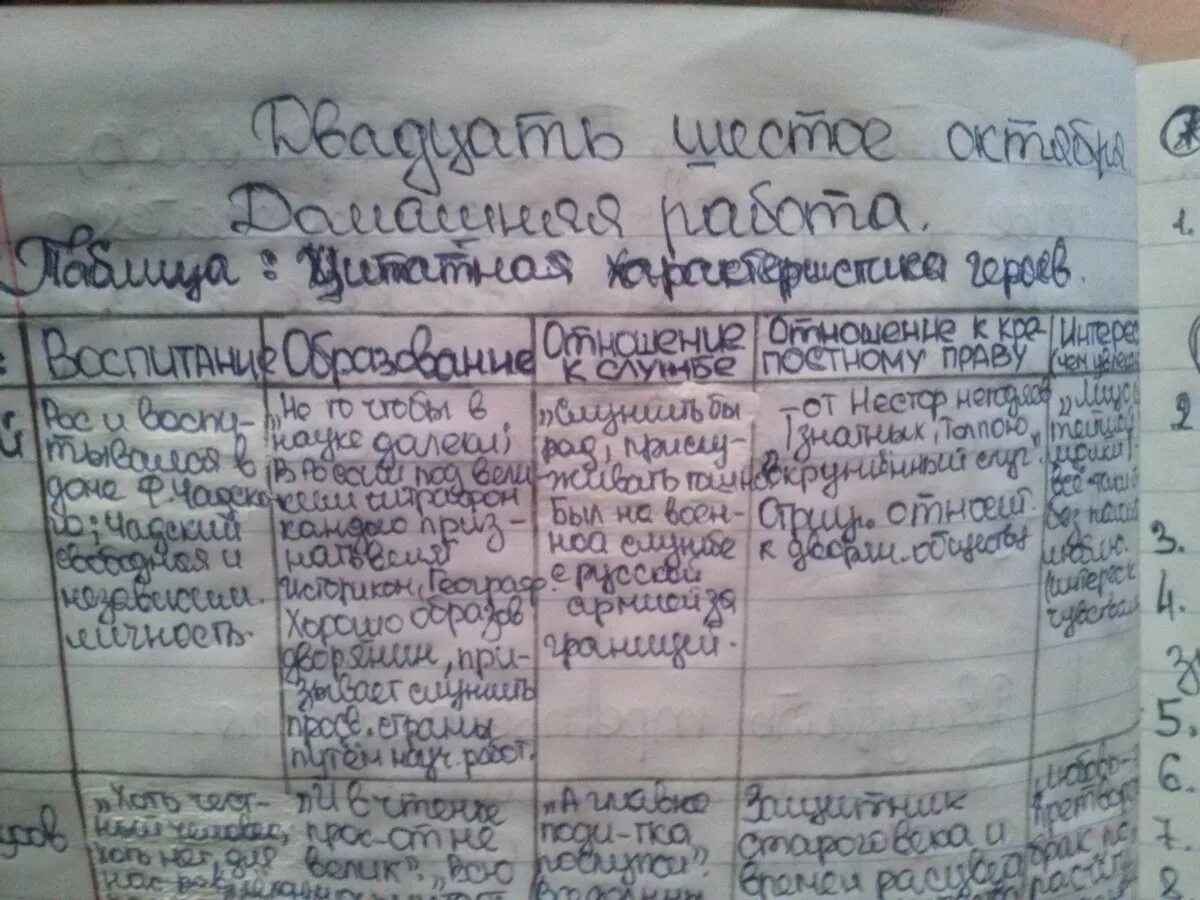 Двадцать шестое октября
Домашняя работа.
Таблица: Цитатная характеристика героев.
Воспитание
Образование
Отношение
к службе
Отношение к кре-
постному праву
Интерес
Рос и воспи-
тывался в
доме Ф.
Чадский
свободная и
независим.
личность.
„Не то чтобы в
науке далеки;
В России под вели-
ким штрафом
каждого приз-
нать велят
историком, Географ.
Хорошо образов
дворянин, при-
зывает служить
просв. страны
путём науч. работ.
„Служить бы
рад, прислу-
живать тошно
Был на воен-
ной службе
с русской
армией за
границей.
– от Нестор негодяев
знатных, Толпою
окружённый слуг"
Отриц. относит.
к дворян. общества
люблю.
„Хоть чест-
ный человек,
хоть нет, для
нас
„И в чтенье
прок-от не
велик". „
„А главное
поди-тка
послужи".
Защитник
старого века и
времен
брак
1.
2
3.
4.
5.
6.
7.
8